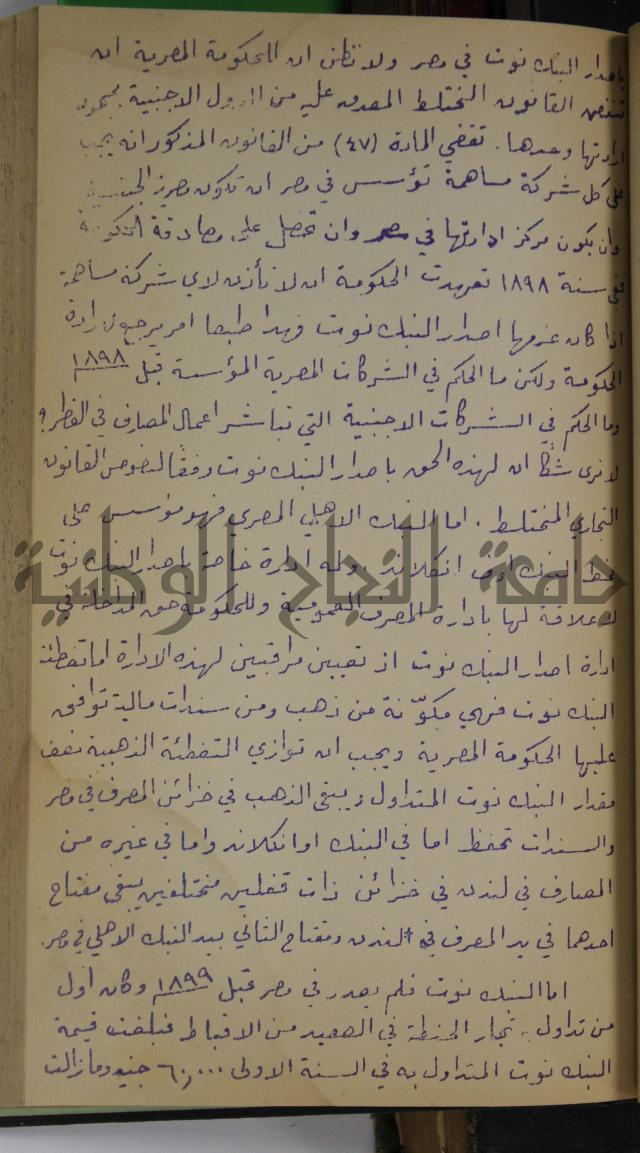 باصدار البنك نوت في مصر ولا تظن ان للحكومة المصرية ان
تنقص القانون المختلط المصدق عليه من الدول الاجنبية بمجرد
ارادتها وحدها . تقضي المادة (٤٧) من القانون المذكور انه يجب
على كل شركة مساهمة تؤسس في مصر ان تكون مصرية الجنسية
وان يكون مركز ادارتها في مصر وان تحصل على مصادقة الحكومة
ففي سنة ١٨٩٨ تعهدت الحكومة ان لا تأذن لاي شركة مساهمة
اذا كان غرضها اصدار البنك نوت فهذا طبعا امر يرجع لارادة
الحكومة ولكن ما الحكم في الشركات المصرية المؤسسة قبل ١٨٩٨
وما الحكم في الشركات الاجنبية التي تباشر اعمال المصارف في القطر ؟
لا نرى شكًا ان لهذه الحق باصدار البنك نوت وفقًا لنصوص القانون
التجاري المختلط . اما البنك الاهلي المصري فهو مؤسس على
نمط البنك اوف انكلاند وله ادارة خاصة باصدار البنك نوت
لا علاقة لها بادارة المصرف العمومية وللحكومة حق المداخلة في
ادارة اصدار البنك نوت اذ تعيين مراقبين لهذه الادارة اما تغطئة
البنك نوت فهي مكوّنة من ذهب ومن سندات مالية توافق
عليها الحكومة المصرية ويجب ان توازي التغطئة الذهبية نصف
مقدار البنك نوت المتداول ويبقى الذهب في خزائن المصرف في مصر
والسندات تحفظ اما في البنك اوانكلاند واما في غيره من
المصارف في لندن في خزائن ذات قفلين مختلفين يبقى مفتاح
احدهما في يد المصرف في لندن ومفتاح الثاني بيد البنك الاهلي في مصر.
اما البنك نوت فلم يصدر في مصر قبل ١٨٩٩ وكان اول
من تداول به تجار الحنطة في الصعيد من الاقباط فبلغت قيمة
البنك نوت المتداول به في السنة الاولى ٦٠,٠٠٠ جنيه وما زالت
جامعة النجاح الوطنية